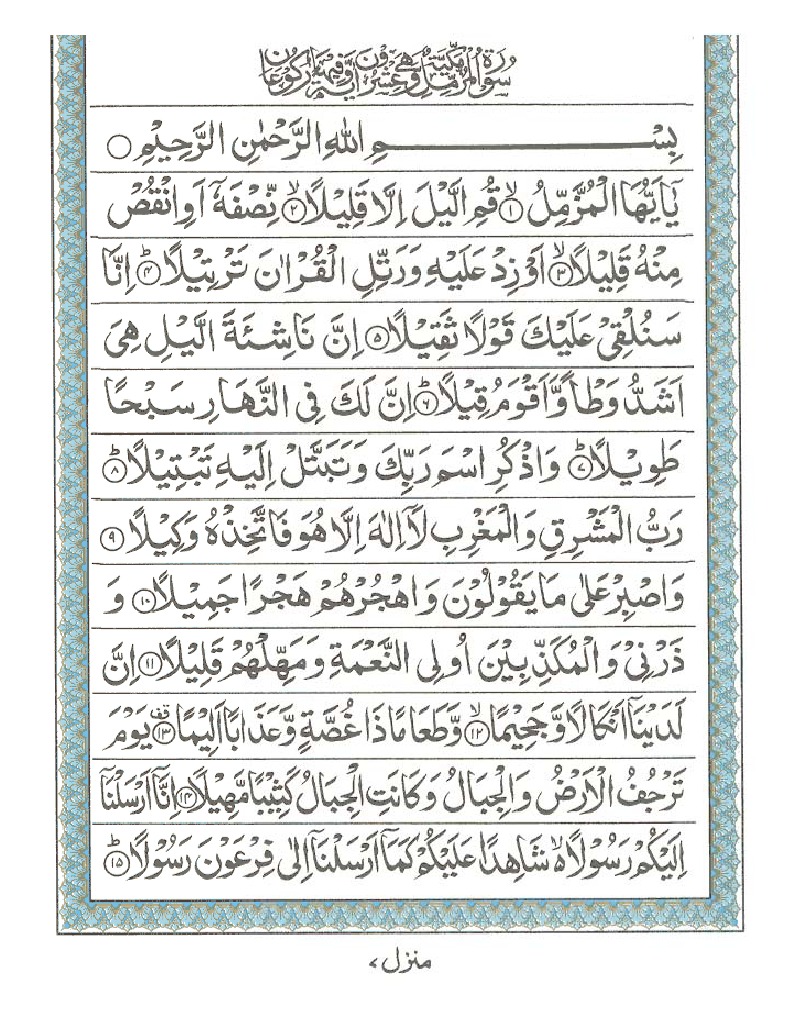 سُوْرَةُ الْمُزَّمِّلِ مَكِّيَّةٌ وَّهِيَ عِشْرُوْنَ اٰيَةً وَّفِيْهَا رُكُوْعَانِ
بِسْمِ اللّٰهِ الرَّحْمٰنِ الرَّحِيْمِ ○
يٰۤاَيُّهَا الْمُزَّمِّلُ ۙ﴿۱﴾ قُمِ الَّيْلَ اِلَّا قَلِيْلًا ۙ﴿۲﴾ نِّصْفَهٗۤ اَوِ انْقُصْ
مِنْهُ قَلِيْلًا ۙ﴿۳﴾ اَوْ زِدْ عَلَيْهِ وَرَتِّلِ الْقُرْاٰنَ تَرْتِيْلًا ؕ﴿۴﴾ اِنَّا
سَنُلْقِيْ عَلَيْكَ قَوْلًا ثَقِيْلًا ﴿۵﴾ اِنَّ نَاشِئَةَ الَّيْلِ هِيَ
اَشَدُّ وَطْاً وَّاَقْوَمُ قِيْلًا ؕ﴿۶﴾ اِنَّ لَكَ فِي النَّهَارِ سَبْحًا
طَوِيْلًا ؕ﴿۷﴾ وَاذْكُرِ اسْمَ رَبِّكَ وَتَبَتَّلْ اِلَيْهِ تَبْتِيْلًا ؕ﴿۸﴾
رَبُّ الْمَشْرِقِ وَالْمَغْرِبِ لَاۤ اِلٰهَ اِلَّا هُوَ فَاتَّخِذْهُ وَكِيْلًا ﴿۹﴾
وَاصْبِرْ عَلٰى مَا يَقُوْلُوْنَ وَاهْجُرْهُمْ هَجْرًا جَمِيْلًا ﴿۱۰﴾ وَ
ذَرْنِيْ وَالْمُكَذِّبِيْنَ اُولِي النَّعْمَةِ وَمَهِّلْهُمْ قَلِيْلًا ﴿۱۱﴾ اِنَّ
لَدَيْنَاۤ اَنْكَالًا وَّجَحِيْمًا ۙ﴿۱۲﴾ وَّطَعَامًا ذَا غُصَّةٍ وَّعَذَابًا اَلِيْمًا ۗ﴿۱۳﴾ يَوْمَ
تَرْجُفُ الْاَرْضُ وَالْجِبَالُ وَكَانَتِ الْجِبَالُ كَثِيْبًا مَّهِيْلًا ﴿۱۴﴾ اِنَّاۤ اَرْسَلْنَاۤ
اِلَيْكُمْ رَسُوْلًا ۙ۬ شَاهِدًا عَلَيْكُمْ كَمَاۤ اَرْسَلْنَاۤ اِلٰى فِرْعَوْنَ رَسُوْلًا ؕ﴿۱۵﴾
منزل ۷